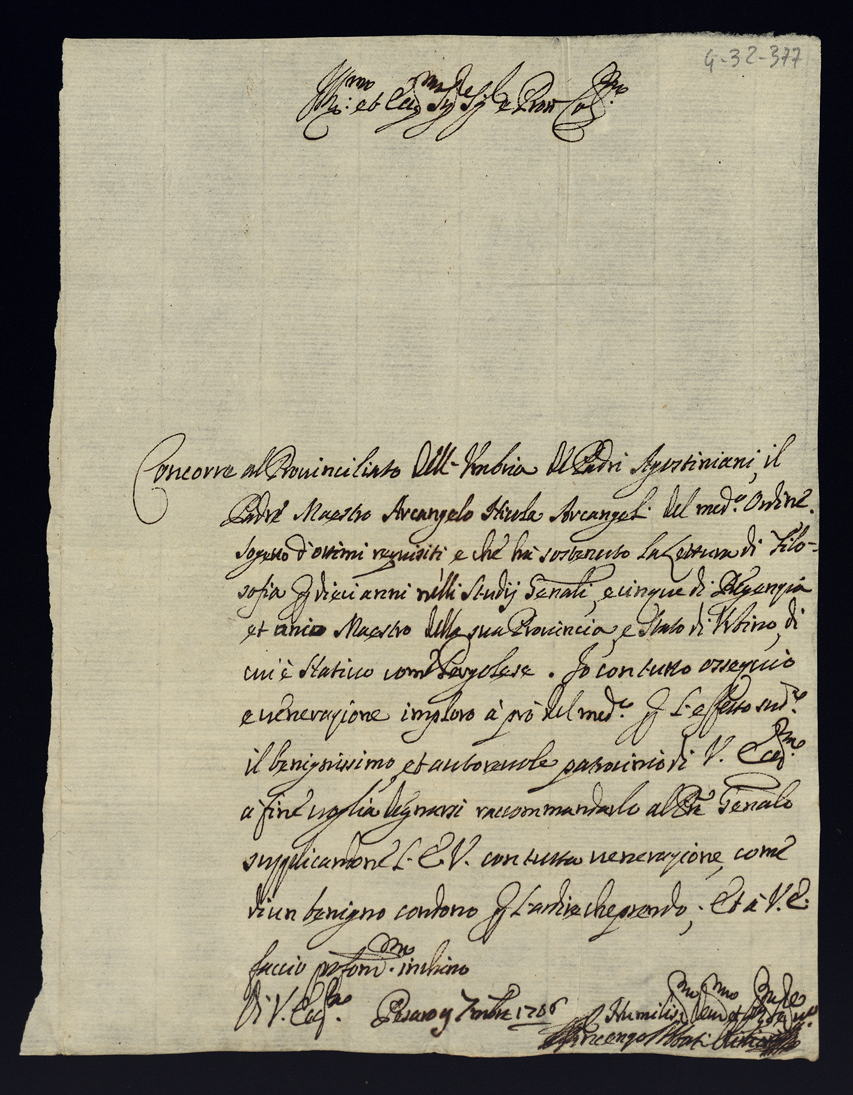 4-32-377
Ill.mo et Ecc.mo Sig.re Sig.re e Pron Col.mo
Concorre al Prouinciliato dell'Umbria de Padri Agostiniani, il
Padre Maestro Arcangelo Nicola Arcangeli del med.o Ordine
sogetto d'ottimi requisiti e che hà sostenuto la Lettura di Filo-
sofia p dieci anni nelli Studij Genali, e cinque di Regenzia
et unico Maestro della sua Prouincia, e Stato di Urbino, di
cui è Natiuo come Pergolese. Io con tutto ossequio
e uenerazione imploro à prò del med.o p l'effetto sud.o
il benignissimo, et autoreuole patrocinio di V. Ecc.za
à fine uoglia degnarsi raccommandarlo al Pre Genale
supplicandone l'E.V. con tutta uenerazione, come
di un benigno condono p l'ardire che prendo; Et à V.E.
faccio profond.mo inchino
Di V. Ecc.za Pesaro 9 7mbre 1706
Humiliss.mo Deu.mo et
Vincenzo Abbati